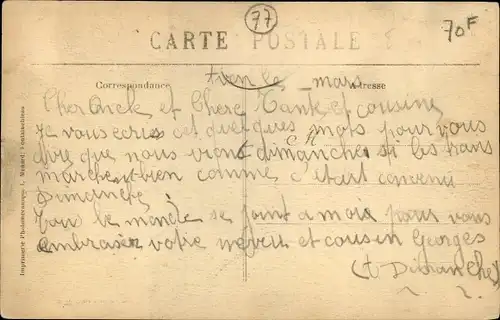 77
70F
CARTE POSTALE
Correspondance
Adresse
le mars
Cher Oncle et Chere Tante et cousine
Je vous ecris cet quelques mots pour vous
dire que nous vient dimanche si les trans
marche bien comme c'etait convenu
Dimanche
Tous le monde se joint a mois pour vous
embrasser votre neveu et cousin Georges
(t Dimanche)
Imprimerie Photomécanique L. Menard, Fontainebleau